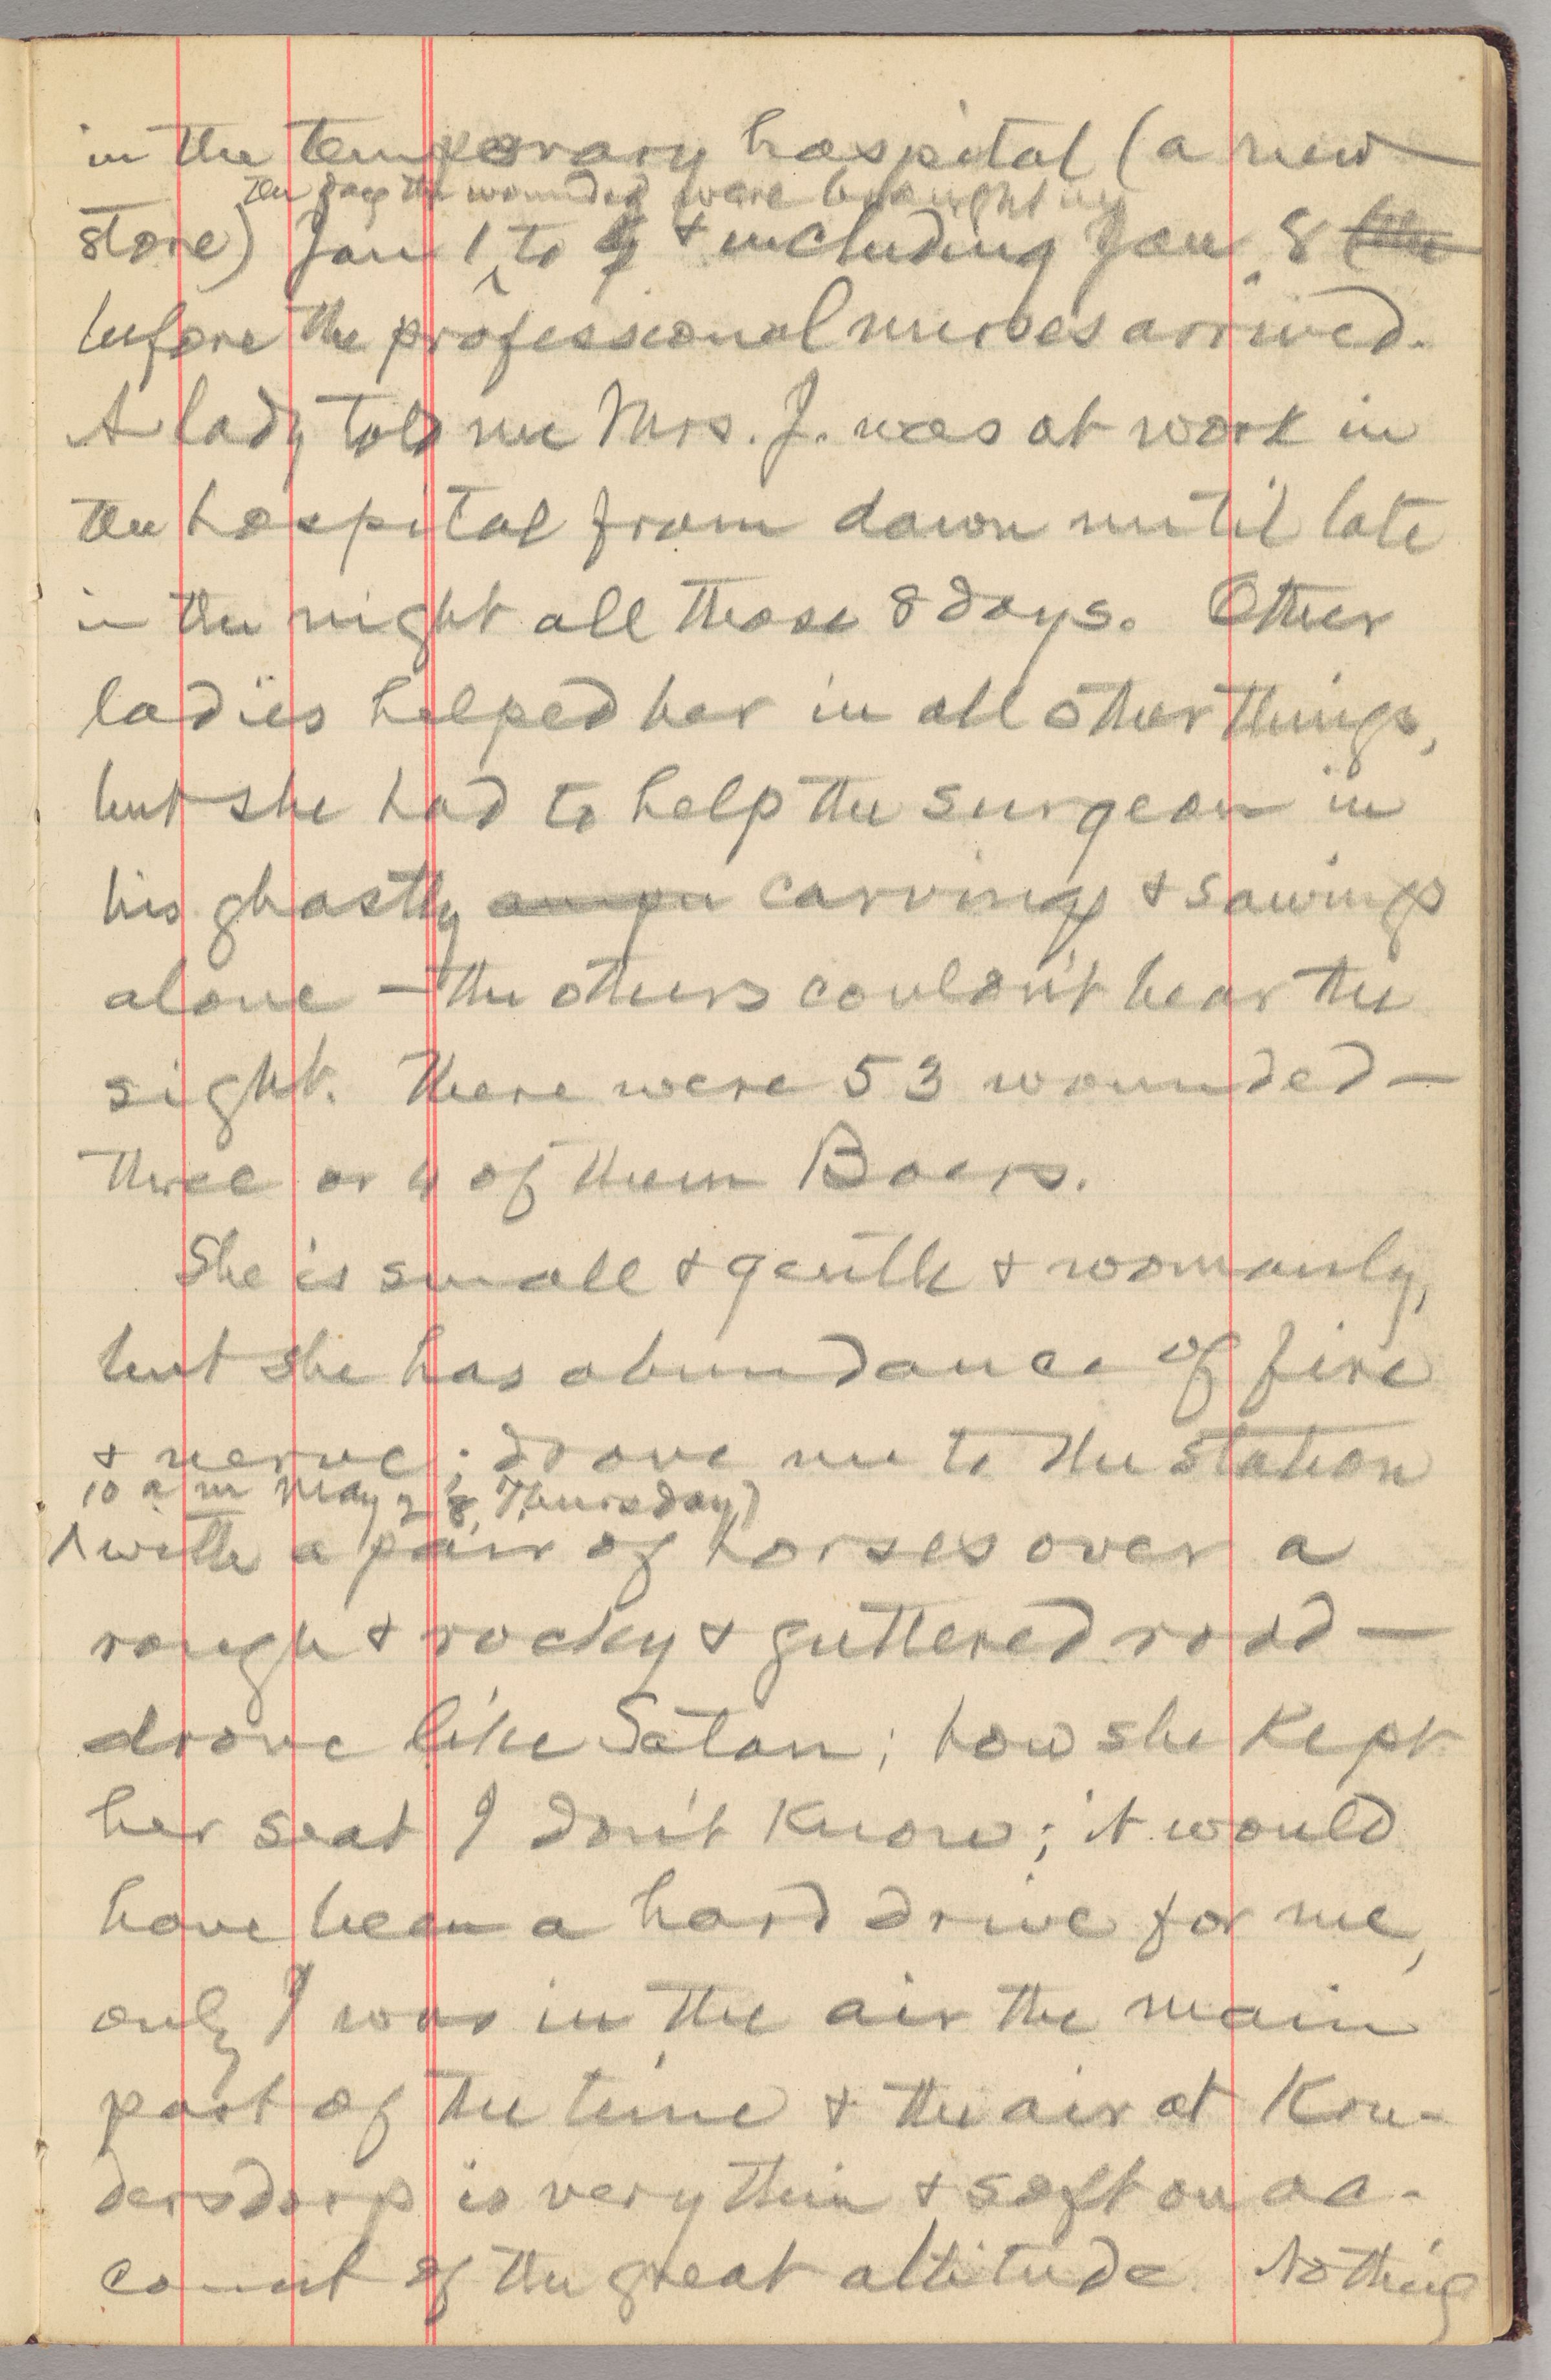 in the temporary hospital (a new
the day the wounded were brought in
store) Jan 1 to & including Jan. 8 the
before the professional nurses arrived.
A lady told me Mrs. J. was at work in
the hospital from dawn until late
in the night all those 8 days. Other
ladies helped her in all other things,
but she had to help the surgeon in
his ghastly ampu carvings & sawings
alone — the others couldn't bear the
sight. There were 53 wounded —
three or 4 of them Boers.
She is small & gentle & womanly,
but she has abundance of fire
& nerve; drove me to the station
10 a m May 28, Thursday)
with a pair of horses over a
rough & rocky & guttered road —
drove like Satan; how she kept
her seat I don't know; it would
have been a hard drive for me,
only I was in the air the main
part of the time & the air at Kru-
dersdorp is very thin & soft on ac-
count of the great altitude. Nothing